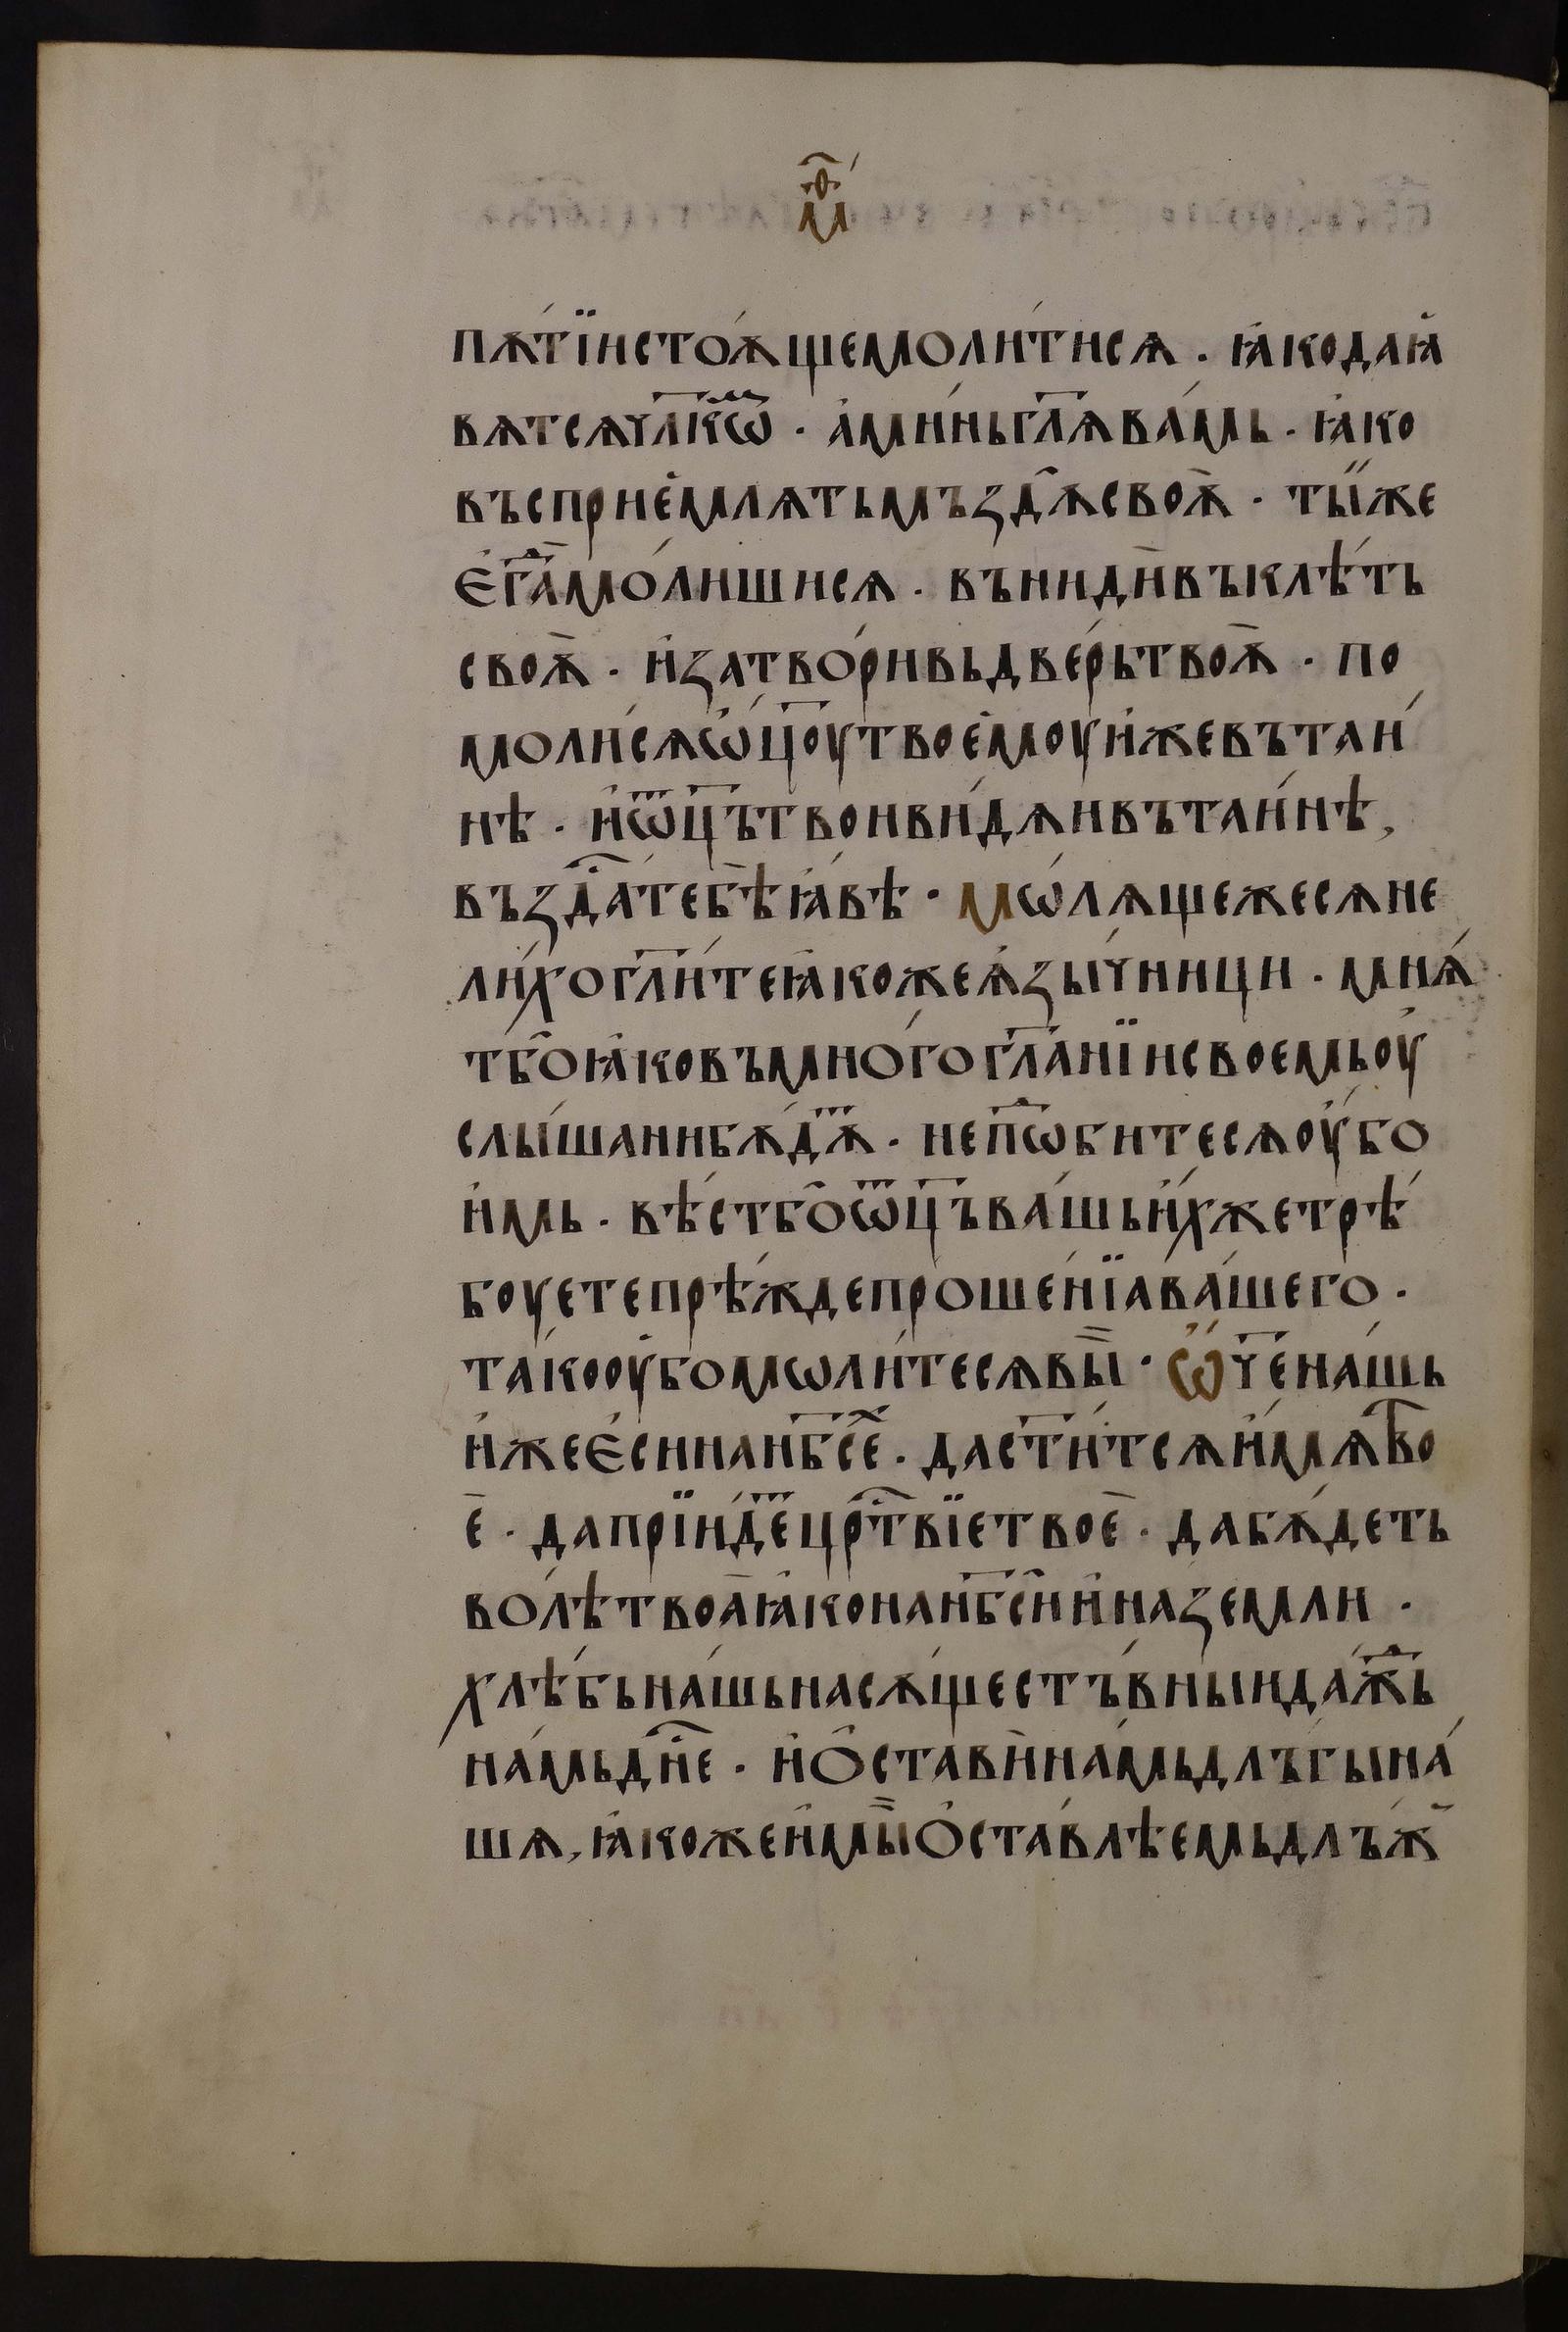 м҃ѳ
пѫ́тїи стоѧ́ще моли́тисѧ · ꙗ҆ко да ꙗ҆
вѧтсѧ чл҃кѡⷨ · а҆ми́нь гл҃ѧ ва́мь · ꙗ҆ко
въсприе҆млѧть мъздѫ̑ своѫ̀ · ты̏ же
є҆гⷣа мо́лишисѧ · въниди̑ въ клѣ́ть
своѫ̀ · и҆ затво́ривь две́рь твоѫ̀ · по
моли́сѧ ѡ҆ц҃оу твое҆моу и҆же въ таи́
нѣ · и҆ ѡⷮц҃ъ твои ви́дѧи въ таи́нѣ,
възда́ⷭ тебѣ̀ ꙗ҆́вѣ · мѡ́лѧще же сѧ не
ли́хо гл҃и́те ꙗ҆коже ѧ҆зы́чници · мнѧ́
т бо̑ ꙗ҆ко въ мно́гогл҃а́нїи своемь оу҆
слы́шани бѫ́дѫⷮ · не пⷣѡбитесѧ оу҆бо
и҆мь · вѣ́ст бо̑ ѡⷮц҃ъ ва́шь и҆́хже трѣ́
боуете прѣ́жде проше́нїа ва́шего ·
та́ко оу҆бо мѡли́тесѧ вы̏ · ѡ҆́ч҃е на́шь
и҆же є҆си на нб҃сеⷯ · да ст҃и́тсѧ и҆́мѧ тво
ѐ · да прїи́деⷮ црⷭ҇твїе твоѐ · да бѫ́деть
во́лѣ твоа̀ ꙗ҆ко на нб҃си и҆ на земли ·
хлѣ́бь на́шь насѫ́щестъ́вныи да́жⷣь
на́мь дн҃еⷭ · и҆ ѻ҆стави̑ на́мь длъ́гы на́
шѧ, ꙗ҆коже и҆ мы̏ ѻ҆ста́влѣемь длъ́ж